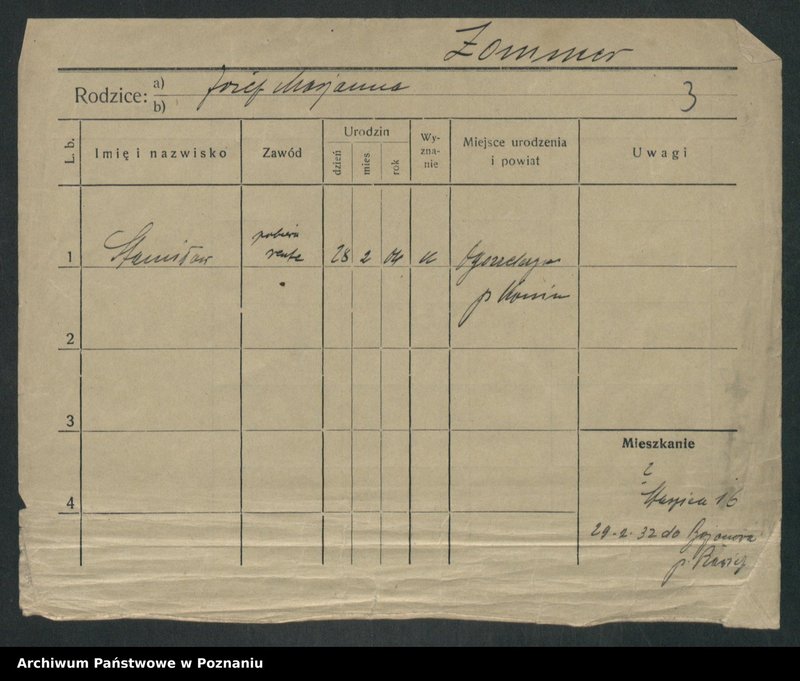 Zommer
Rodzice: a) Józef Marjanna
b)
3
L. b. Imię i nazwisko Zawód Urodzin dzień mies rok Wy-zna-nie Miejsce urodzenia i powiat Uwagi
1 Stanisław pobiera rentę 28 2 04 k
p. Konin
2
3
Mieszkanie
z
4
Staszica 16
29.2.32 do Bojanowa
p. Rawicz
Archiwum Państwowe w Poznaniu